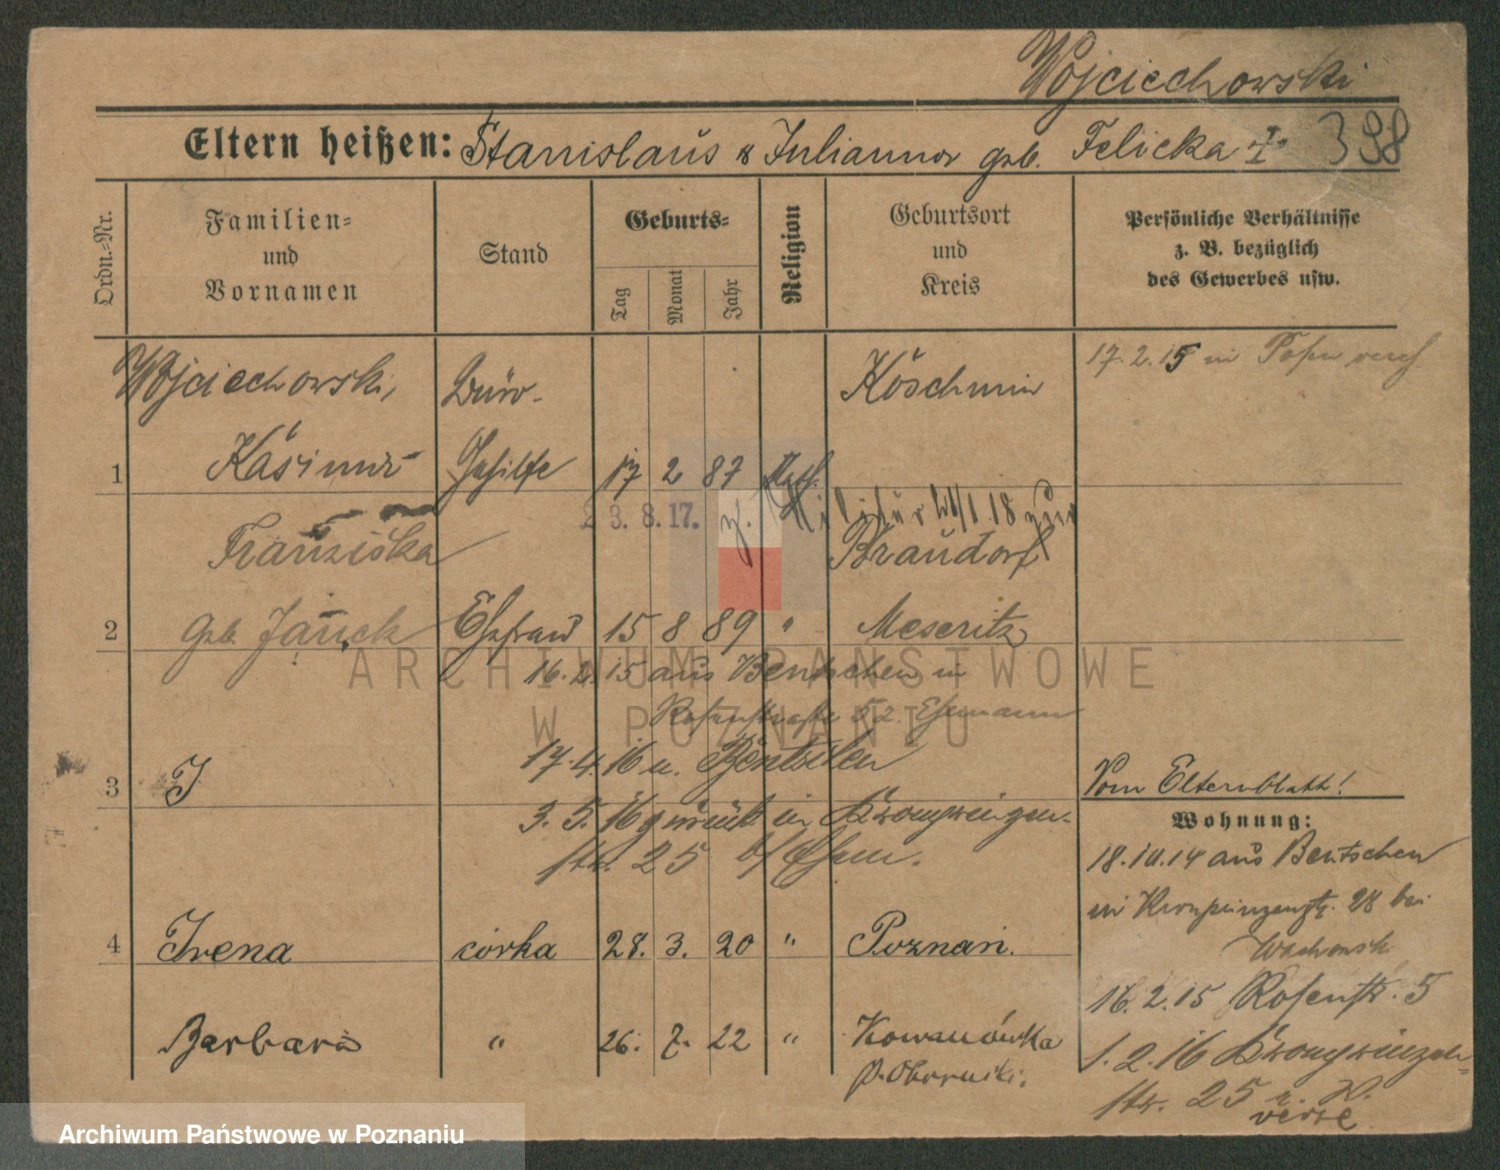 Wojciechowski
Eltern heißen: Stanislaus & Julianna geb. Felicka 398
Ordn.-Nr.
Familien- und Vornamen
Stand
Geburts-
Tag
Monat
Jahr
Religion
Geburtsort und Kreis
Persönliche Verhältnisse z. B. bezüglich des Gewerbes usw.
Wojciechowski, Büro- Koschmin 17. 2. 15 in Posen verh.
1 Kasimir Gehilfe 17 2 87 Kath.
23.8.17. z. Militär 21/1.18 zur
Franziska Braudorf
2 geb. Ehefrau 15 8 89 " Meseritz
16. 2. 15 aus Bentschen in
Rosenstraße 5 z. Ehemann
17. 4. 16 n. Bentschen
3 J Vom Elternblatt!
3. 5. 16 zurück in Kronprinzen-
str. 25 b/Ehem.
Wohnung:
18.10.14 aus Bentschen
in Kronprinzenstr. 28 bei
4 Irena córka 28. 3. 20 " Poznań.
16. 2. 15 Rosenstr. 5
Barbara " 26. 7. 22 " Kowanówka
p. Obornicki.
1. 2. 16 Kronprinzen-
str. 25
verse
ARCHIWUM PAŃSTWOWE
W POZNANIU
Archiwum Państwowe w Poznaniu